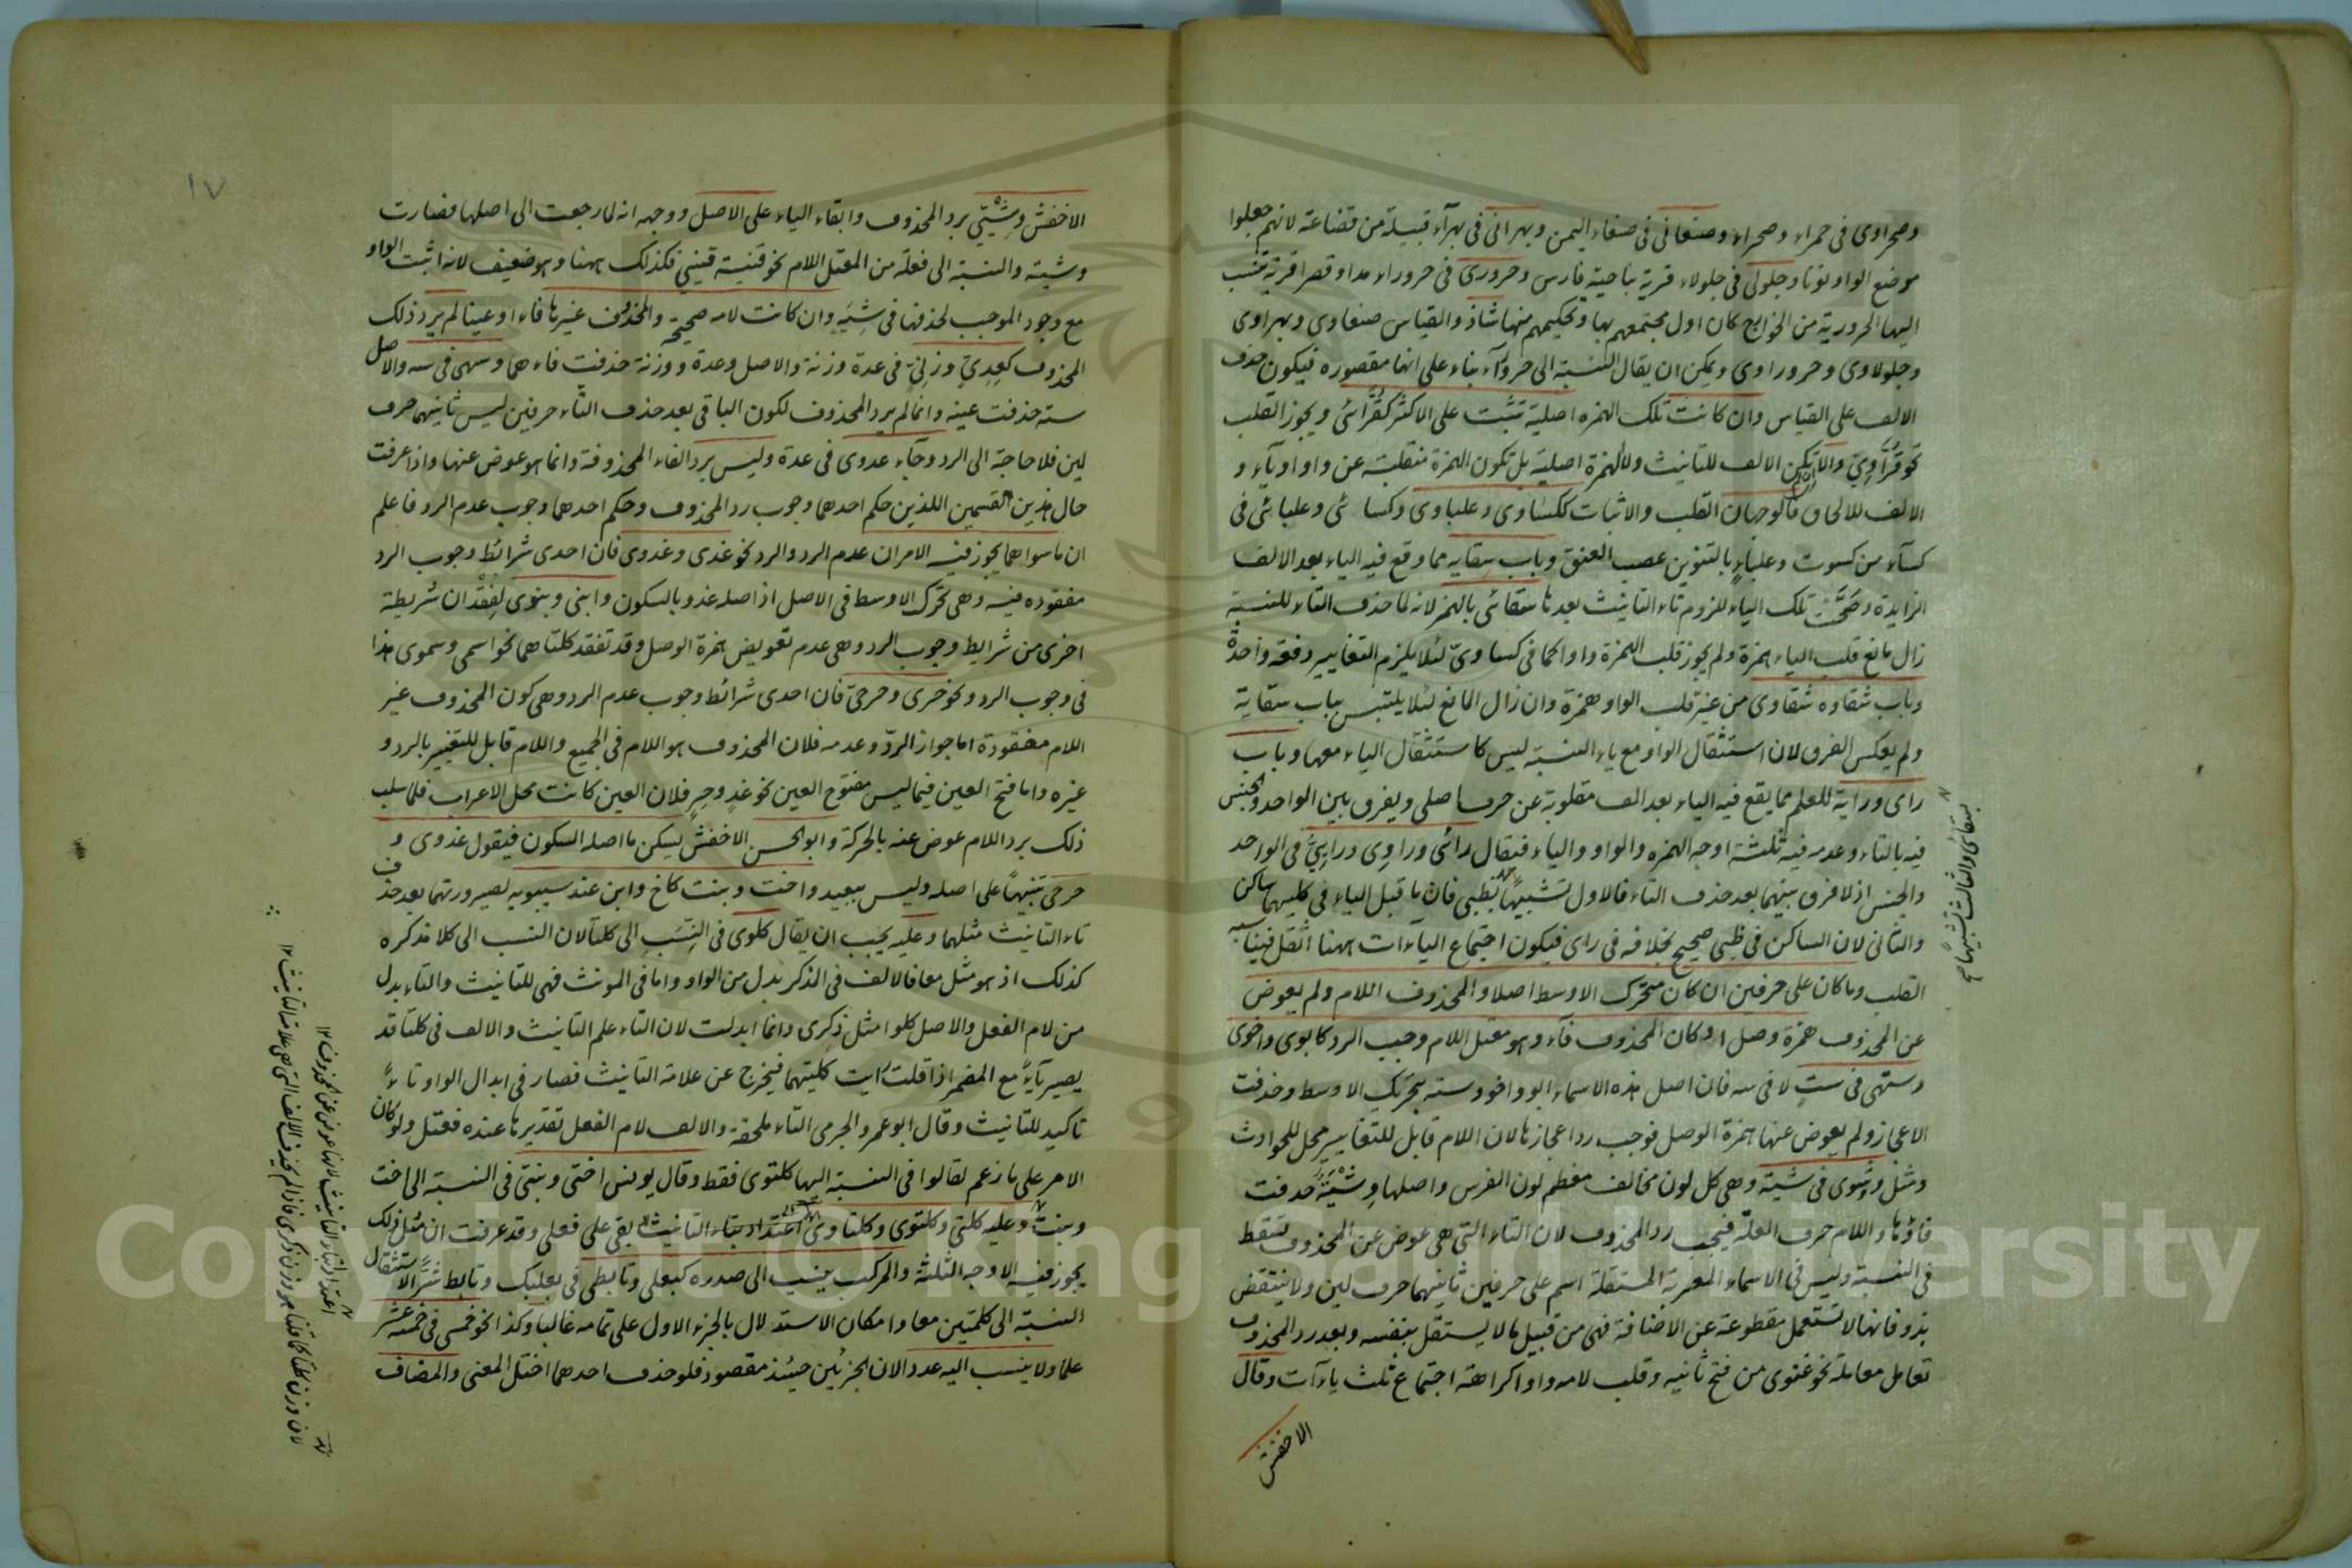 وصحراوى فى حمراء وصحراء وصنعانى فى صنعاء اليمن وبهرانى فى بهرآء قبيلة من قضاعة لانهم جعلوا
موضع الواو نونا وجلولى فى جلولاء قرية بناحية فارس وحرورى فى حروراء مدا وقصرا قرية تنسب
اليها الحرورية من الخوارج كان اول مجتمعهم بها وتحكيمهم منها شاذ والقياس صنعاوى وبهراوى
وجلولاوى وحروراوى ويمكن ان يقال النسبة الى حرورآء بناء على انها مقصوره فيكون حذف
الالف على القياس وان كانت تلك الهمزه اصلية تثبت على الاكثر كقُرَّائى ويجوز القلب
نحو قُرَّاوِىّ والا تكن الالف للتانيث ولا الهمزة اصلية بل تكون الهمزة منقلبة عن واو او يآء و
الالف للالحاق فالوجهان القلب والاثبات ككساوى وعلباوى وكسائى وعلبائى فى
كسآء من كسوت وعلباءٍ بالتنوين عصب العنق وباب سِقايه مما وقع فيه الياء بعد الالف
الزايدة وصَحَّت تلك الياء للزوم تاء التانيث بعدها سقائى بالهمز لانه لما حذف التاء للنسبة
زال مانع قلب الياء همزة ولم يجوز قلب الهمزة واوا كما فى كساوىّ لئلا يلزم التغايير دفعه واحدة
وباب شقاوه شقاوى من غير قلب الواو همزة وان زال المانع لئلا يلتبس بباب سقاية
ولم يعكس الفرق لان استثقال الواو مع ياء النسبة ليس كاستثقال الياء معها وباب
راى وراية للعلم مما يقع فيه الياء بعد الف مقلوبة عن حرف اصلى ويفرق بين الواحد والجنس
فيه بالتاء وعدمه فيه ثلثة اوجه الهمزه والواو والياء فيقال رائى وراوى ورايىّ فى الواحد
والجنس اذ لا فرق بينهما بعد حذف التاء فالاول تشبيهًا بظبى فان ما قبل الياء فى كليهما ساكن
والثانى لان الساكن فى ظبى صحيح بخلافه فى راى فيكون اجتماع اليآءات ههنا اثقل فيناسبه
القلب وما كان على حرفين ان كان متحرك الاوسط اصلا والمحذوف اللام ولم يعوض
عن المحذوف همزة وصل او كان المحذوف فآء وهو معتل اللام وجب الرد كابوى واخوى
وستهى فى ستٍ لا فى سه فان اصل هذه الاسماء ابو واخو وسته بتحريك الاوسط وحذفت
الاعجاز ولم يعوض عنها همزة الوصل فوجب رد اعجازها لان اللام قابل للتغايير محل للحوادث
ومثل وشوى فى شية وهى كل لون مخالف معظم لون الفرس واصلها وِشْيَة حذفت
فاؤها واللام حرف العلة فيجب رد المحذوف لان التاء التى هى عوض عن المحذوف تسقط
فى النسبة وليس فى الاسماء المعربة المستقلة اسم على حرفين ثانيهما حرف لين ولا ينتقض
بذو فانها لا تستعمل مقطوعة عن الاضافة فهى من قبيل ما لا يستقل بنفسه وبعد رد المحذوف
تعامل معاملة نحو غنوى من فتح ثانيه وقلب لامه واوا كراهة اجتماع ثلث ياءآت وقال
الاخفش
سقائى والثالث تشبيها صح
١٧
الاخفش وِشْيِىّ برد المحذوف وابقاء الياء على الاصل ووجهه انه لما رجعت الى اصلها فصارت
وشية والنسبة الى فعلة من المعتل اللام نحو قنية قنيىّ فكذلك ههنا وهو ضعيف لانه اثبت الواو
مع وجود الموجب لحذفها فى شِيَةٍ وان كانت لامه صحيحة والمحذوف غيرها فاء او عينا لم يرد ذلك
المحذوف كعِدِىّ وزِنِىّ فى عدة وزنة والاصل وعدة ووزنة حذفت فاءهما وسهى فى سه والاصل
سته حذفت عينه وانما لم يرد المحذوف لكون الباقى بعد حذف التّاء حرفين ليس ثانيهما حرف
لين فلا حاجة الى الرد وجآء عدوى فى عدة وليس برد الفاء المحذوفة وانما هو عوض عنها واذا عرفت
حال هذين القسمين اللذين حكم احدهما وجوب رد المحذوف وحكم احدهما وجوب عدم الرد فاعلم
ان ما سواهما يجوز فيه الامران عدم الرد والرد نحو غدى وغدوى فان احدى شرائط وجوب الرد
مفقوده فيه وهى تحرّك الاوسط فى الاصل اذ اصله غدو بالسكون وابنى وبنوى لِفُقْدان شريطة
اخرى من شرايط وجوب الرد وهى عدم تعويض همزة الوصل وقد تفقد كلتاهما نحو اسمى وسموى هذا
فى وجوب الرد ونحو حرى وحرحىّ فان احدى شرائط وجوب عدم الرد وهى كون المحذوف غير
اللام مفقودة اما جواز الردّ وعدمه فلان المحذوف هو اللام فى الجميع واللام قابل للتغيير بالرد و
غيره واما فتح العين فيما ليس مفتوح العين نحو غدٍ وحِرٍ فلان العين كانت محل الاعراب فلما سلب
ذلك برد اللام عوض عنه بالحركة وابو الحسن الاخفش يسكن ما اصله السكون فيقول غدوى و
حرحى تنبيهًا على اصله وليس ببعيد واخت وبنت كاخ وابن عند سيبويه لصيرورتهما بعد حذف
تاء التانيث مثلهما وعليه يجب ان يقال كلوى فى النِسَب الى كلتا لان النسب الى كلا مذكره
كذلك اذ هو مثل معا فالالف فى الذكر بدل من الواو واما فى المونث فهى للتانيث والتاء بدل
من لام الفعل والاصل كلوا مثل ذِكرى وانما ابدلت لان التاء علم التانيث والالف فى كلتا قد
يصير يآءً مع المضمر اذا قلت رايت كلتيهما فيخرج عن علامة التانيث فصار فى ابدال الواو تاءً
تاكيد للتانيث وقال ابو عمر والجرمى التّاء ملحقة والالف لام الفعل تقديرها عنده فعتل ولو كان
الامر على ما زعم لقالوا فى النسبة اليها كلتوى فقط وقال يونس اختى وبنتى فى النسبة الى اخت
وبنت وعليه كلتى وكلتوى وكلتاوى اعتدادبتاء التانيث بقى على فعلى وقد عرفت ان مثل ذلك
يجوز فيه الاوجه الثلثة والمركب ينسب الى صدره كبعلى وتابطى فى بعلبك وتابط شرًّا لاستثقال
النسبة الى كلمتين معا وامكان الاستدلال بالجزء الاول على تمامه غالبا وكذا نحو خمسى فى خمسة عشر
علما ولا ينسب اليه عددا لان الجزئين حينئذ مقصود فلو حذف احدهما اختل المعنى والمضاف